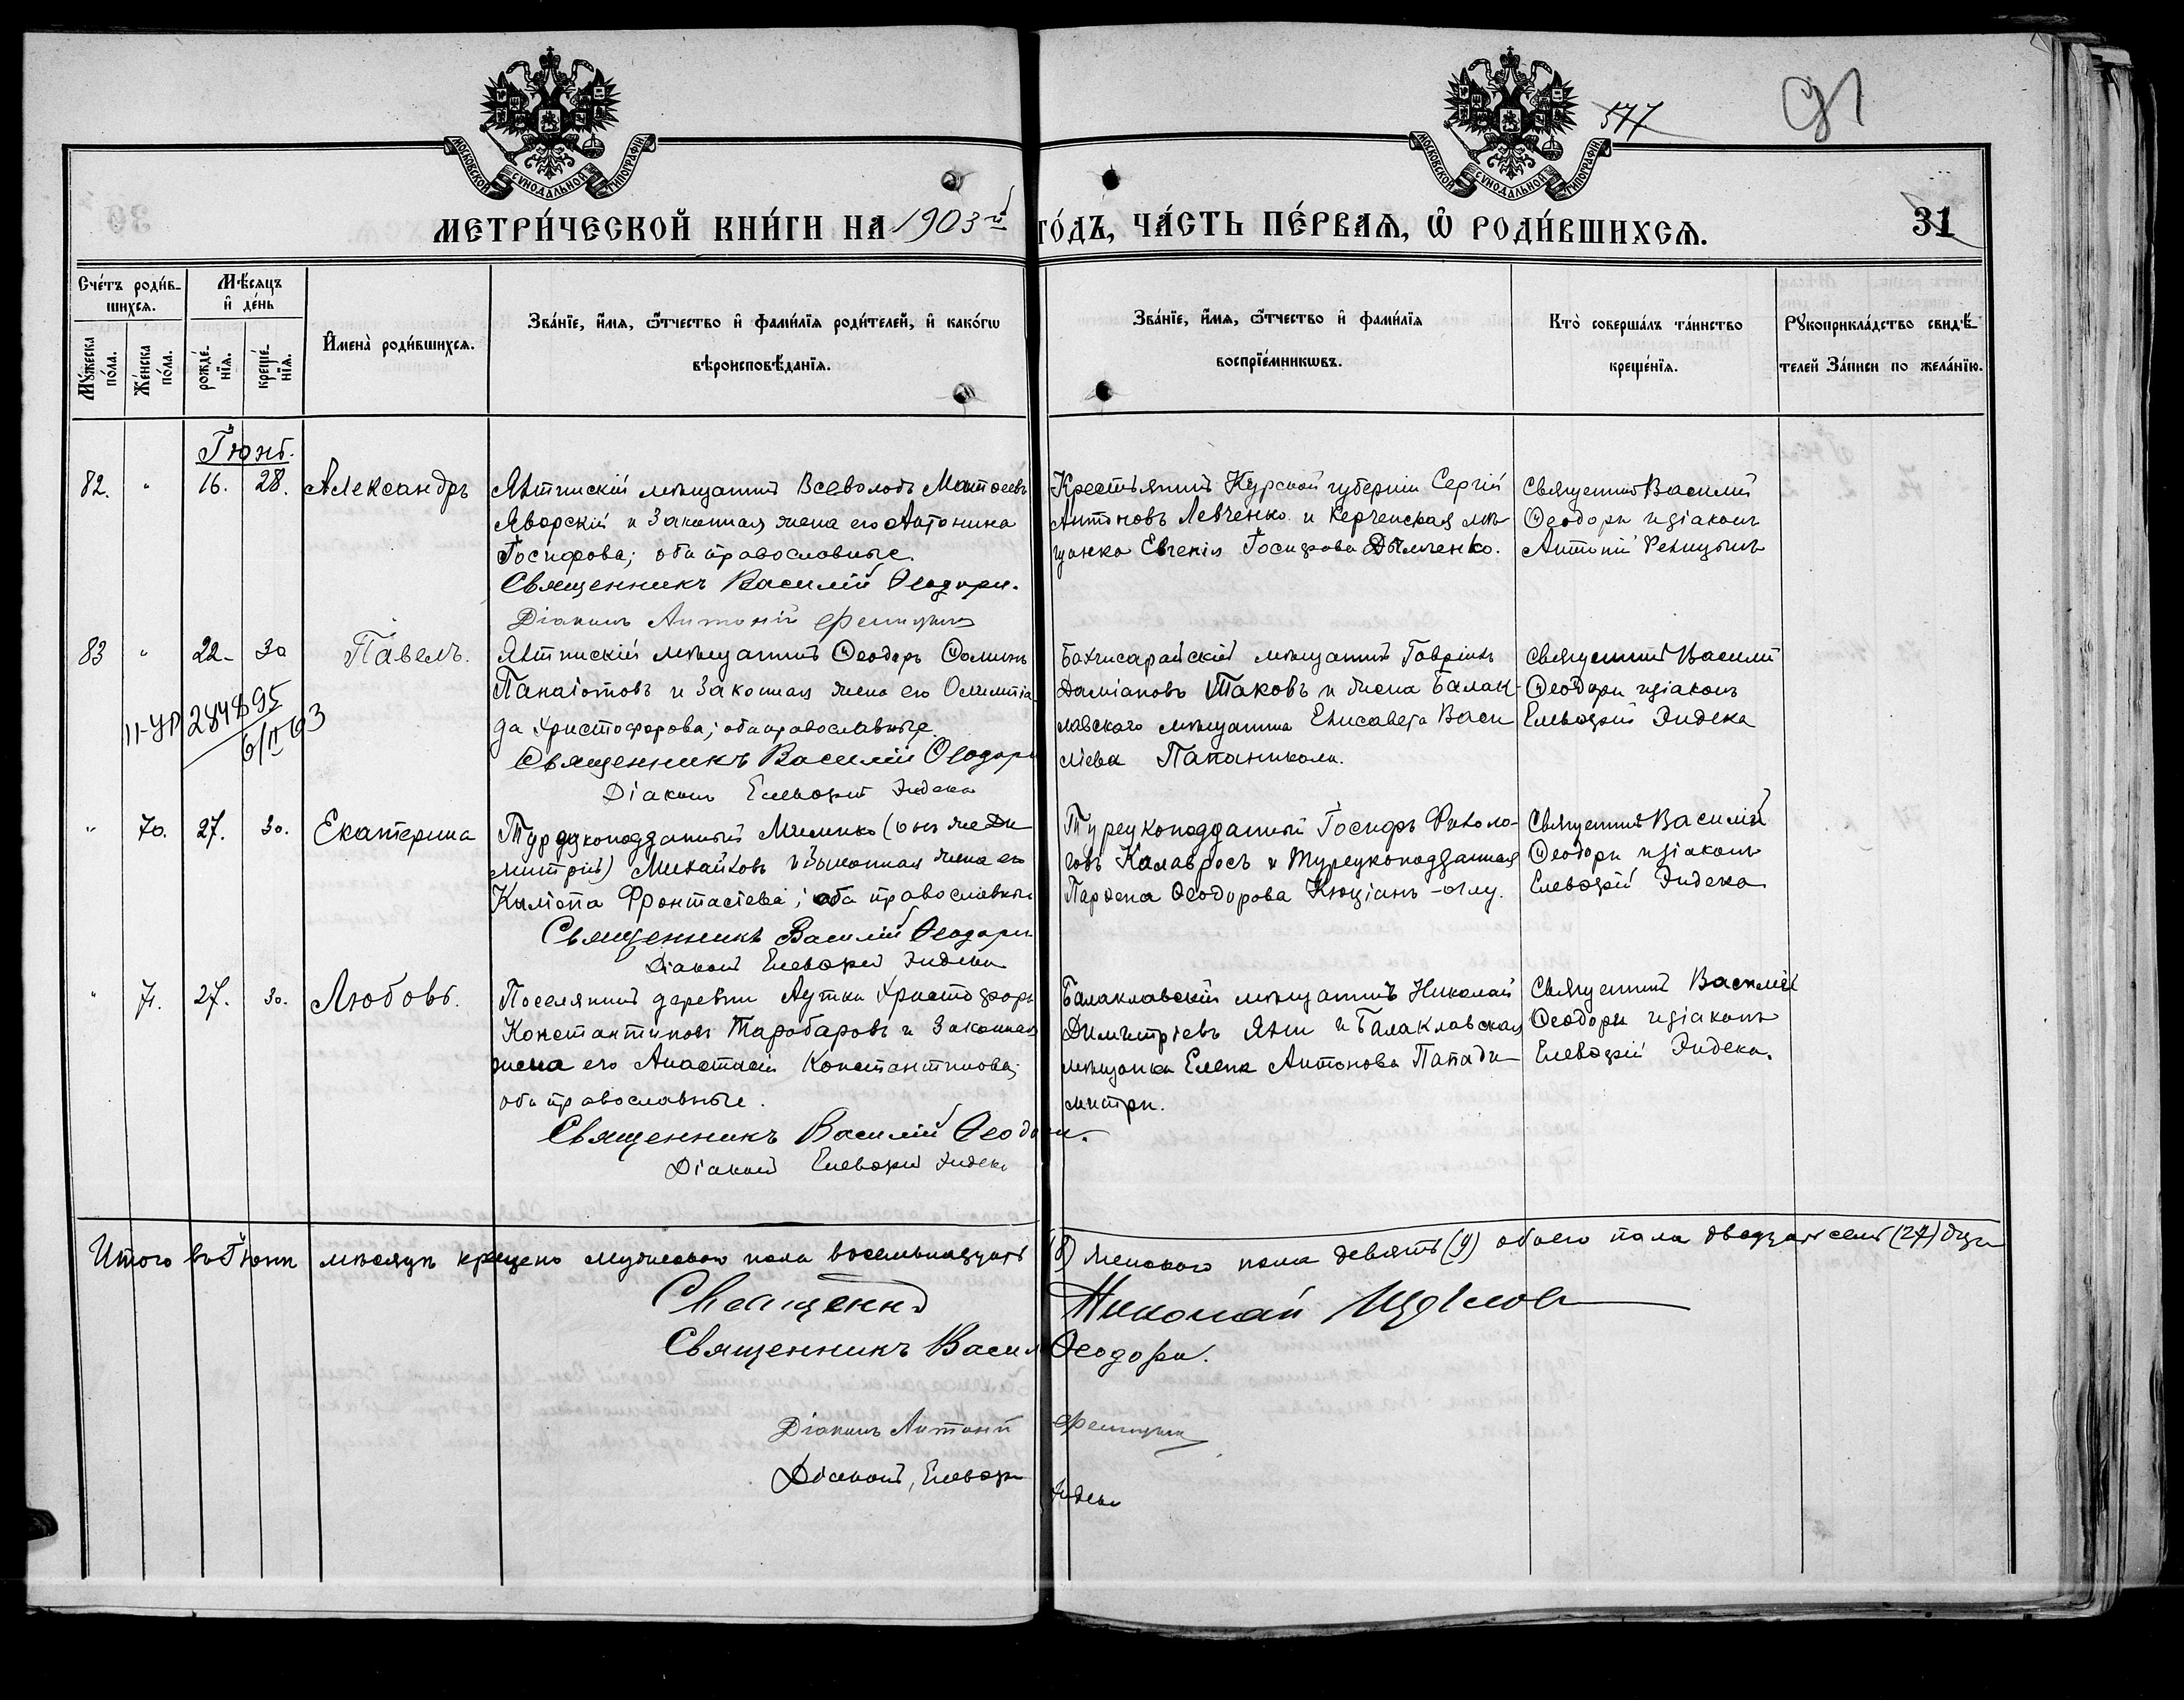 МОСКОВСКОЙ СѴНОДАЛЬНОЙ ТИПОГРАФІИ
МОСКОВСКОЙ СѴНОДАЛЬНОЙ ТИПОГРАФІИ
177
91
МЕТРИ́ЧЕСКОЙ КНИ́ГИ НА 1903й ГО́ДЪ, ЧА́СТЬ ПЕ́РВАѦ, Ѡ҆ РОДИ́ВШИХСѦ.
31
Сче́тъ роди́в-
шихсѧ.
Мꙋ́жеска по́ла.
Же́нска по́ла.
Мѣ́сѧцъ
и҆ де́нь
рожде́-
нїѧ.
креще́-
нїѧ.
И҆мена̀ роди́вшихсѧ.
Зва́нїе, и҆́мѧ, ѻ҆́тчество и҆ фами́лїѧ роди́телей, и҆ како́гѡ
вѣроисповѣ́данїѧ.
Зва́нїе, и҆́мѧ, ѻ҆́тчество и҆ фами́лїѧ
воспрїе́мникѡвъ.
Кто̀ соверша́лъ та́инство
креще́нїѧ.
Рꙋкоприкла́дство свидѣ́-
телей За́писи по жела́нїю.
Іюнь.
82. " 16. 28. Александръ
Ялтинскій мѣщанинъ Всеволодъ Матѳеевъ
Яворскій и законная жена его Антонина
Іосифова; оба православные.
Священникъ Василій Ѳеодори.
Діаконъ Антоній Феницынъ
Крестьянинъ Курской губерніи Сергій
Антоновъ Левченко и Керченская мѣ
щанка Евгенія Іосифова Дымченко.
Священникъ Василій
Ѳеодори и діаконъ
Антоній Феницынъ
83 " 22 30 Павелъ.
Ялтинскій мѣщанинъ Ѳеодоръ Ѳоминъ
Панаіотовъ и законная жена его Олимпіа
да Христофорова; оба православные.
Священникъ Василій Ѳеодори
Діаконъ Елевѳерій Индека
Бахчисарайскій мѣщанинъ Гавріилъ
Даміановъ Таковъ и жена Балак-
лавскаго мѣщанина Елисавета Васи
ліева Папаникола.
Священникъ Василій
Ѳеодори и діаконъ
Елевѳерій Индека
II-УР 284895
6/II 63
" 70. 27. 30. Екатерина
Турецкоподданный Милинко (онъ же Ди
митрій) Михайловъ и законная жена его
Каліопа Фронтасіева; оба православные
Священникъ Василій Ѳеодори
Діаконъ Елевѳерій Индека
Турецкоподданный Іосифъ Николо-
евъ Калавросъ и Турецкоподданная
Парѳена Ѳеодорова Кюціанъ-оглу.
Священникъ Василій
Ѳеодори и діаконъ
Елевѳерій Индека
" 71. 27. 30. Любовь.
Поселянинъ деревни Аутки Христофоръ
Константиновъ Таробаровъ и законная
жена его Анастасія Константинова;
оба православные.
Священникъ Василій Ѳеодори.
Діаконъ Елевѳерій Индека
Балаклавскій мѣщанинъ Николай
Димитріевъ Яни и Балаклавская
мѣщанка Елена Антонова Папади-
митри.
Священникъ Василій
Ѳеодори и діаконъ
Елевѳерій Индека.
Итого въ Іюнѣ мѣсяцѣ крещено мужескаго пола восемьнадцать женскаго пола девять (9) обоего пола двадцать семь (27) душъ
Священникъ Николай
Священникъ Василій Ѳеодори.
Діаконъ Антоній Феницынъ
Діаконъ, Елевѳерій Индека